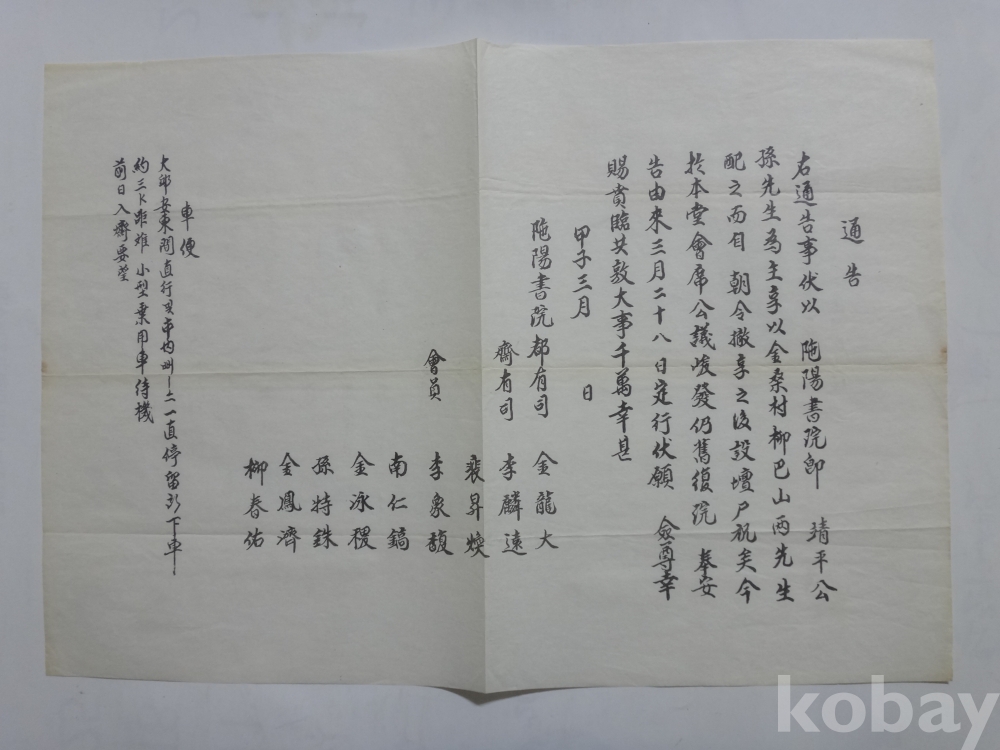 通告
右通告事伏以 陁陽書院卽 靖平公
孫先生爲主享以金桑村柳巴山兩先生
配之而自 朝令撤享之後設壇尸祝矣今
於本堂會席公議峻發仍舊復院 奉安
告由來三月二十八日定行伏願 僉尊幸
賜賁臨共敦大事千萬幸甚
甲子三月 日
陁陽書院都有司 金龍大
齋有司 李麟遠
裵昇煥
會員 李象馥
南仁鎬
金泳稷
孫特銖
金鳳濟
柳春佑
車便
大邱安東間直行
一直停留所下車
約三K 距離 小型乗用車待機
前日入齋要望
kobay